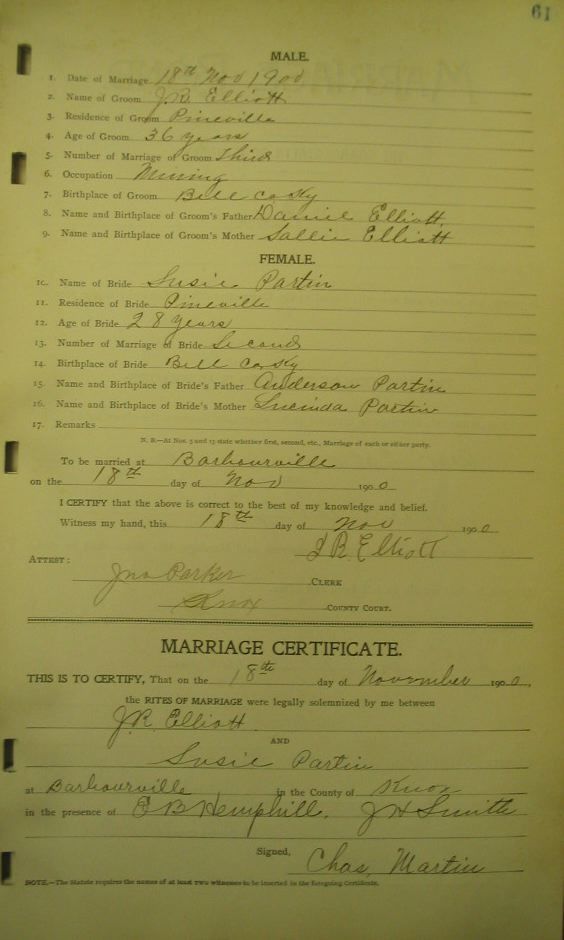 61
MALE.
1. Date of Marriage 18th Nov 1900
2. Name of Groom J.R. Elliott
3. Residence of Groom Pineville
4. Age of Groom 36 years
5. Number of Marriage of Groom Third
6. Occupation Mining
7. Birthplace of Groom Bell Co Ky
8. Name and Birthplace of Groom's Father Daniel Elliott
9. Name and Birthplace of Groom's Mother Sallie Elliott
FEMALE.
10. Name of Bride Susie Partin
11. Residence of Bride Pineville
12. Age of Bride 28 years
13. Number of Marriage of Bride Second
14. Birthplace of Bride Bell Co Ky
15. Name and Birthplace of Bride's Father Anderson Partin
16. Name and Birthplace of Bride's Mother Lucinda Partin
17. Remarks
N. B.—At Nos. 5 and 13 state whether first, second, etc., Marriage of each or either party.
To be married at Barbourville
on the 18th day of Nov 1900
I CERTIFY that the above is correct to the best of my knowledge and belief.
Witness my hand, this 18th day of Nov 1900
J R Elliott
ATTEST:
Jno Parker CLERK
Knox COUNTY COURT.
MARRIAGE CERTIFICATE.
THIS IS TO CERTIFY, That on the 18th day of November 1900,
the RITES OF MARRIAGE were legally solemnized by me between
J.R. Elliott
AND
Susie Partin
at Barbourville in the County of Knox
in the presence of E B Hemphill. J H Smith
Signed, Chas. Martin
NOTE.—The Statute requires the names of at least two witnesses to be inserted in the foregoing Certificate.